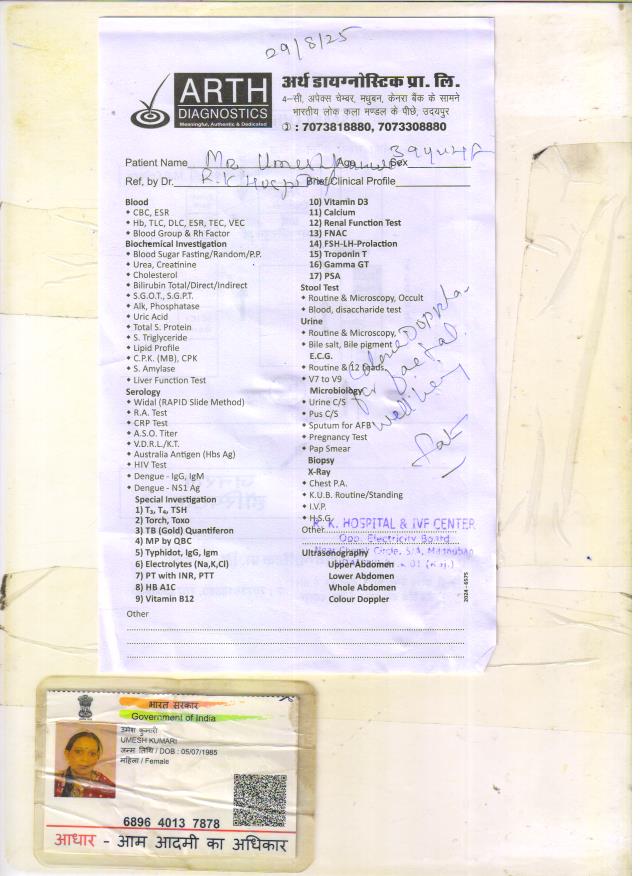 29/8/25
ARTH
DIAGNOSTICS
Meaningful, Authentic & Dedicated
अर्थ डायग्नोस्टिक प्रा. लि.
4-सी, अपेक्स चेम्बर, मधुबन, केनरा बैंक के सामने
भारतीय लोक कला मण्डल के पीछे, उदयपुर
: 7073818880, 7073308880
Patient Name Umesh Age Sex
Ref, by Dr. R.K Hospital Brief Clinical Profile
Blood
CBC, ESR
Hb, TLC, DLC, ESR, TEC, VEC
Blood Group & Rh Factor
Biochemical Investigation
Blood Sugar Fasting/Random/P.P.
Urea, Creatinine
Cholesterol
Bilirubin Total/Direct/Indirect
S.G.O.T., S.G.P.T.
Alk, Phosphatase
Uric Acid
Total S. Protein
S. Triglyceride
Lipid Profile
C.P.K. (MB), CPK
S. Amylase
Liver Function Test
Serology
Widal (RAPID Slide Method)
R.A. Test
CRP Test
A.S.O. Titer
V.D.R.L./K.T.
Australia Antigen (Hbs Ag)
HIV Test
Dengue - IgG, IgM
Dengue - NS1 Ag
Special Investigation
1) T₃, T₄, TSH
2) Torch, Toxo
3) TB (Gold) Quantiferon
4) MP by QBC
5) Typhidot, IgG, Igm
6) Electrolytes (Na,K,Cl)
7) PT with INR, PTT
8) HB A1C
9) Vitamin B12
Other
10) Vitamin D3
11) Calcium
12) Renal Function Test
13) FNAC
14) FSH-LH-Prolaction
15) Troponin T
16) Gamma GT
17) PSA
Stool Test
Routine & Microscopy, Occult
Blood, disaccharide test
Urine
Routine & Microscopy,
Bile salt, Bile pigment
E.C.G.
Routine & 12 Leads
V7 to V9
Microbiology
Urine C/S
Pus C/S
Sputum for AFB
Pregnancy Test
Pap Smear
Biopsy
X-Ray
Chest P.A.
K.U.B. Routine/Standing
I.V.P.
H.S.G.
Other
Ultrasonography
Upper Abdomen
Lower Abdomen
Whole Abdomen
Colour Doppler
Colour Doppler
for faetal
well being
R. K. HOSPITAL & IVF CENTER
Opp. Electricity Board
2024 - 6575
भारत सरकार
Government of India
उमेश कुमारी
UMESH KUMARI
जन्म तिथि / DOB : 05/07/1985
महिला / Female
6896 4013 7878
आधार - आम आदमी का अधिकार